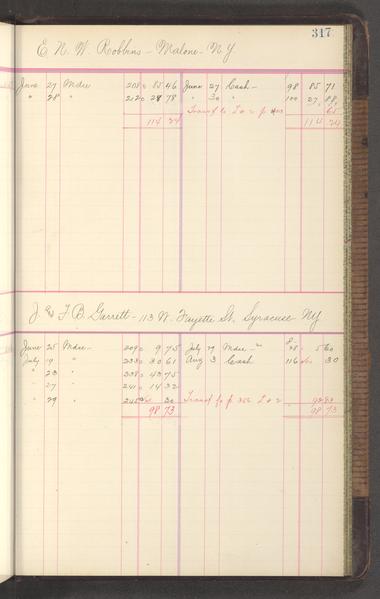 317
E. N. W. Robbins - Malone - N.Y
June 27 Mdse 208 85 46 June 27 Cash - 98 85 71
" 28 " 212 28 78 " 30 " 100 27 88
Transf to L o 2 p 65
114 24 114 24
J & F. B. Garrett - 113 W. Fayette St. Syracuse NY
June 25 Mdse - 209 9 75 July 19 Mdse - 28 5 60
July 19 " 233 30 61 Aug 3 Cash 116 30
" 23 " 238 43 75
" 27 " 241 14 32
" 29 " 245 30 Transf fo p 352 L o 2
98 73 98 73